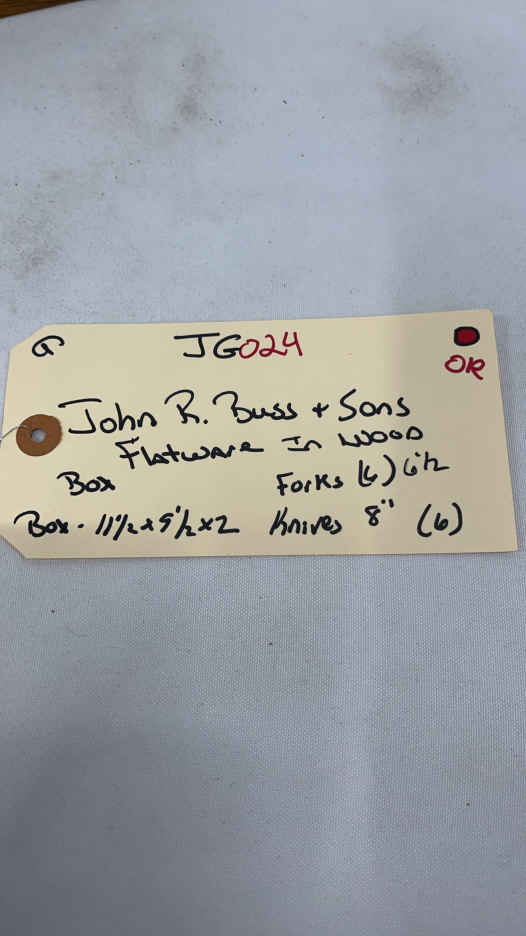 JG024
OR
John R. Buss + Sons
Flatware In WOOD
Box Forks (6) 6 1/2
Box - 11 1/2 x 9 1/2 x 2 Knives 8" (6)